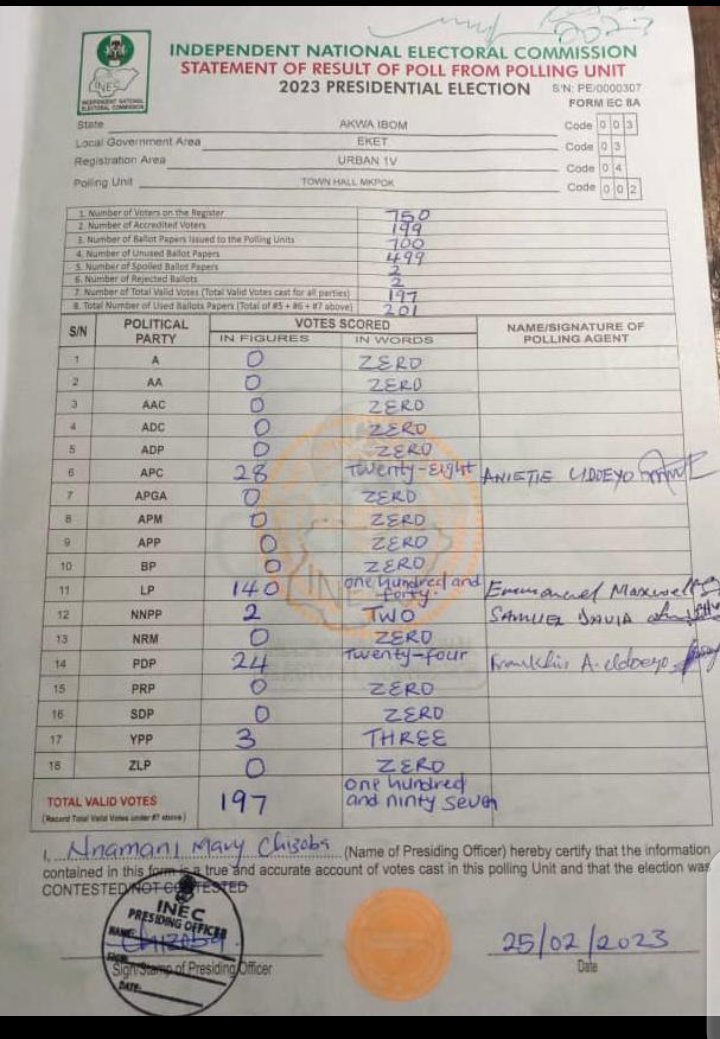 0027
INEC
INDEPENDENT NATIONAL ELECTORAL COMMISSION
INDEPENDENT NATIONAL ELECTORAL COMMISSION
STATEMENT OF RESULT OF POLL FROM POLLING UNIT
2023 PRESIDENTIAL ELECTION S/N: PE/0000307
FORM EC 8A
State AKWA IBOM Code 0 0 3
Local Government Area EKET Code 0 3
Registration Area URBAN 1V Code 0 4
Polling Unit TOWN HALL MKPOK Code 0 0 2
1. Number of Voters on the Register 750
2. Number of Accredited Voters 199
3. Number of Ballot Papers Issued to the Polling Units 700
4. Number of Unused Ballot Papers 499
5. Number of Spoiled Ballot Papers 2
6. Number of Rejected Ballots 2
7. Number of Total Valid Votes (Total Valid Votes cast for all parties) 197
8. Total Number of Used Ballots Papers (Total of #5 + #6 + #7 above) 201
S/N POLITICAL PARTY VOTES SCORED NAME/SIGNATURE OF POLLING AGENT
IN FIGURES IN WORDS
1 A 0 ZERO
2 AA 0 ZERO
3 AAC 0 ZERO
4 ADC 0 ZERO
5 ADP 0 ZERO
6 APC 28 Twenty-eight ANIETIE UDOEYO
7 APGA 0 ZERO
8 APM 0 ZERO
9 APP 0 ZERO
10 BP 0 ZERO
11 LP 140 one hundred and forty. Emmanuel Maxwell
12 NNPP 2 TWO SAMUEL DAVID
13 NRM 0 ZERO
14 PDP 24 Twenty-four Franklin A. Udoeyo
15 PRP 0 ZERO
16 SDP 0 ZERO
17 YPP 3 THREE
18 ZLP 0 ZERO
TOTAL VALID VOTES 197 one hundred and ninty seven
(Record Total Valid Votes under #7 above)
I, Nnamani Mary Chizoba (Name of Presiding Officer) hereby certify that the information
contained in this form is a true and accurate account of votes cast in this polling Unit and that the election was
CONTESTED/NOT CONTESTED
INEC
PRESIDING OFFICER
NAME: Chizoba
SIGN:
DATE:
Sign/Stamp of Presiding Officer
25/02/2023
Date